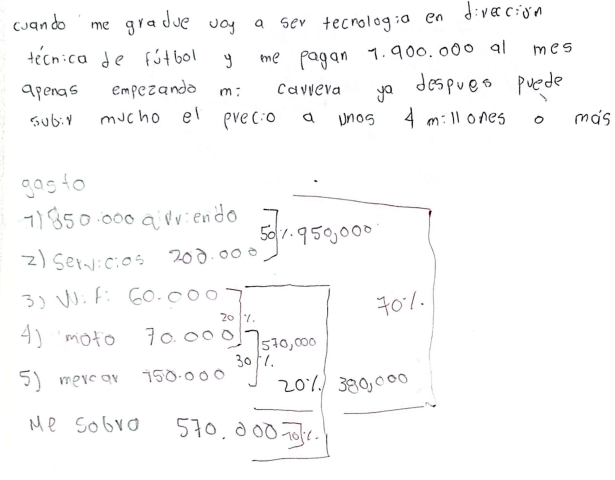 cuando me gradue voy a ser tecnologia en dirección
técnica de fútbol y me pagan 1.900.000 al mes
apenas empezando mi carrera ya despues puede
subir mucho el precio a unos 4 millones o más
gasto
1) 850.000 arriendo
50%. 950,000
2) Servicios 200.000
3) Wifi 60.000
20%.
70%.
4) moto 70.000
570,000
30%.
5) mercar 150.000
20% 380,000
Me sobro 570.000